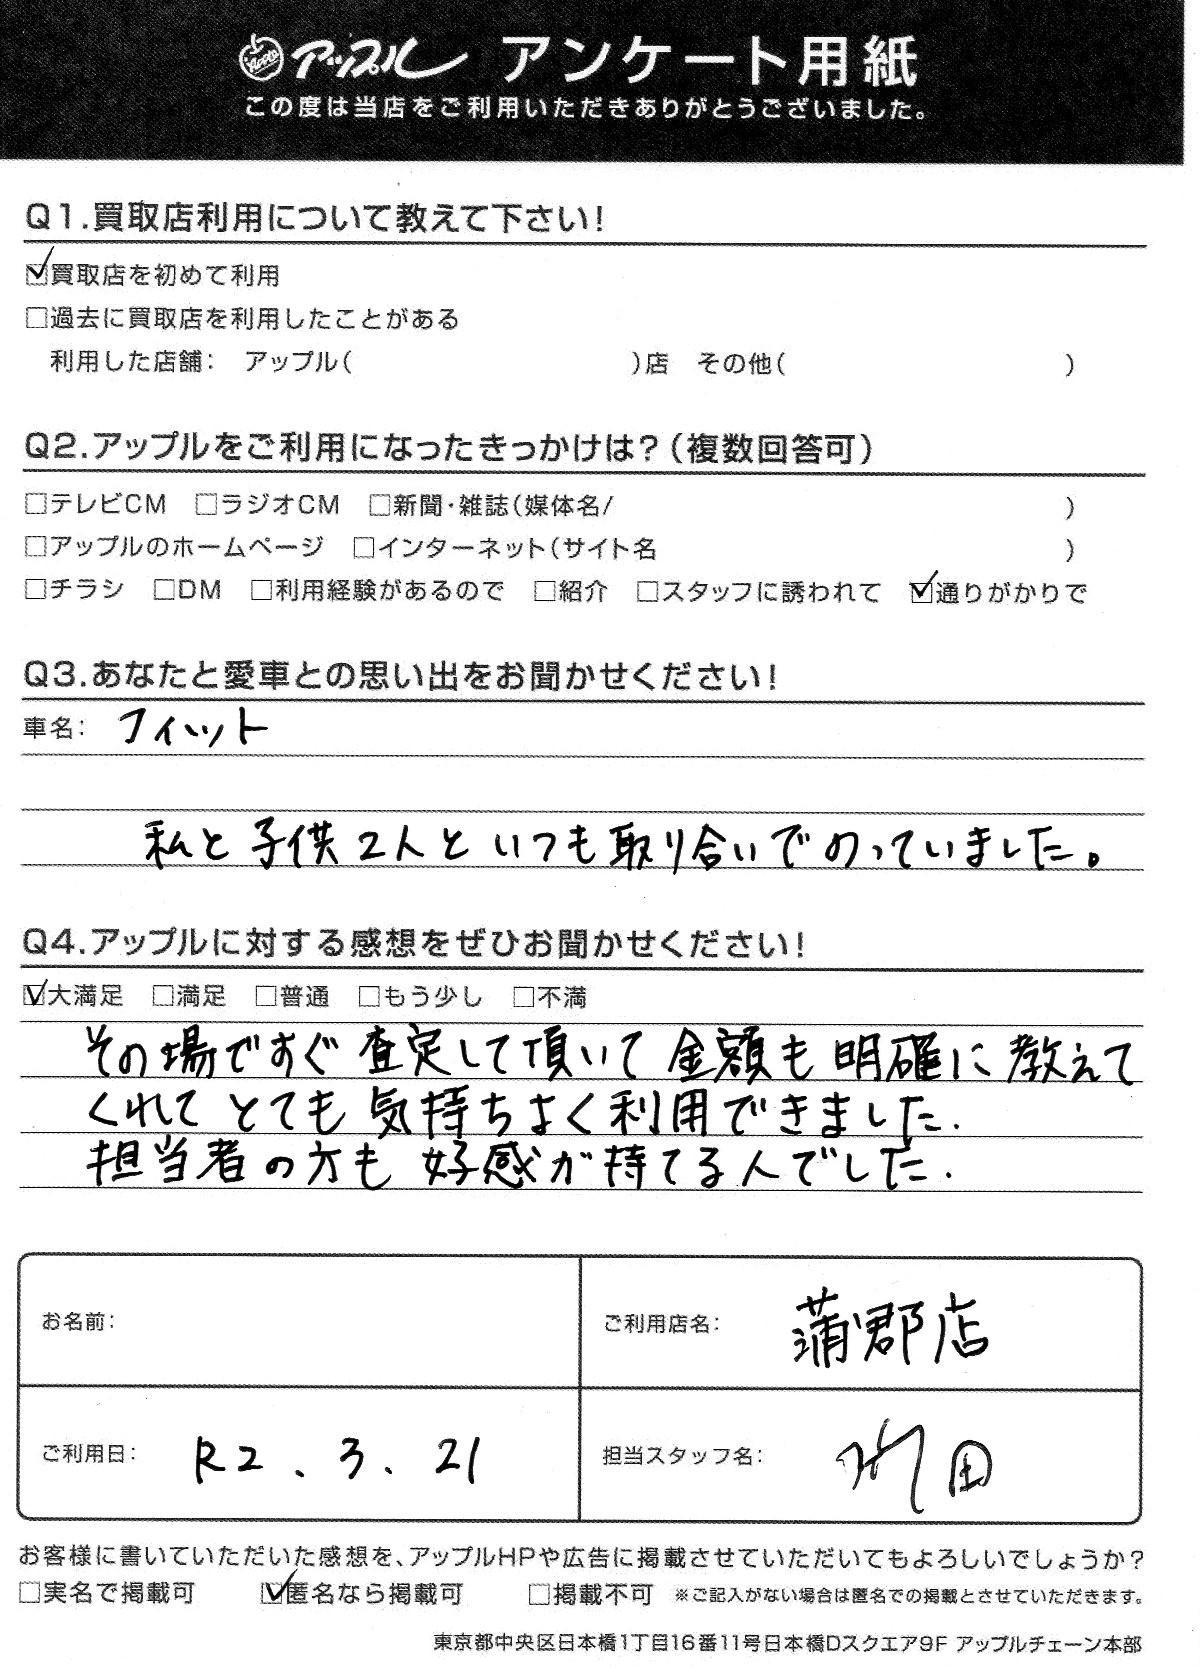 Apple アップル アンケート用紙
この度は当店をご利用いただきありがとうございました。
Q1.買取店利用について教えて下さい!
☑買取店を初めて利用
□過去に買取店を利用したことがある
利用した店舗: アップル( )店 その他( )
Q2.アップルをご利用になったきっかけは?(複数回答可)
□テレビCM □ラジオCM □新聞・雑誌(媒体名/ )
□アップルのホームページ □インターネット(サイト名 )
□チラシ □DM □利用経験があるので □紹介 □スタッフに誘われて ☑通りがかりで
Q3.あなたと愛車との思い出をお聞かせください!
車名: フィット
私と子供2人といつも取り合いでのっていました。
Q4.アップルに対する感想をぜひお聞かせください!
☑大満足 □満足 □普通 □もう少し □不満
その場ですぐ査定して頂いて金額も明確に教えて
くれてとても気持ちよく利用できました.
担当者の方も好感が持てる人でした.
お名前:
ご利用店名: 蒲郡店
ご利用日: R2.3.21
担当スタッフ名: 田
お客様に書いていただいた感想を、アップルHPや広告に掲載させていただいてもよろしいでしょうか?
□実名で掲載可 ☑匿名なら掲載可 □掲載不可 ※ご記入がない場合は匿名での掲載とさせていただきます。
東京都中央区日本橋1丁目16番11号日本橋Dスクエア9F アップルチェーン本部